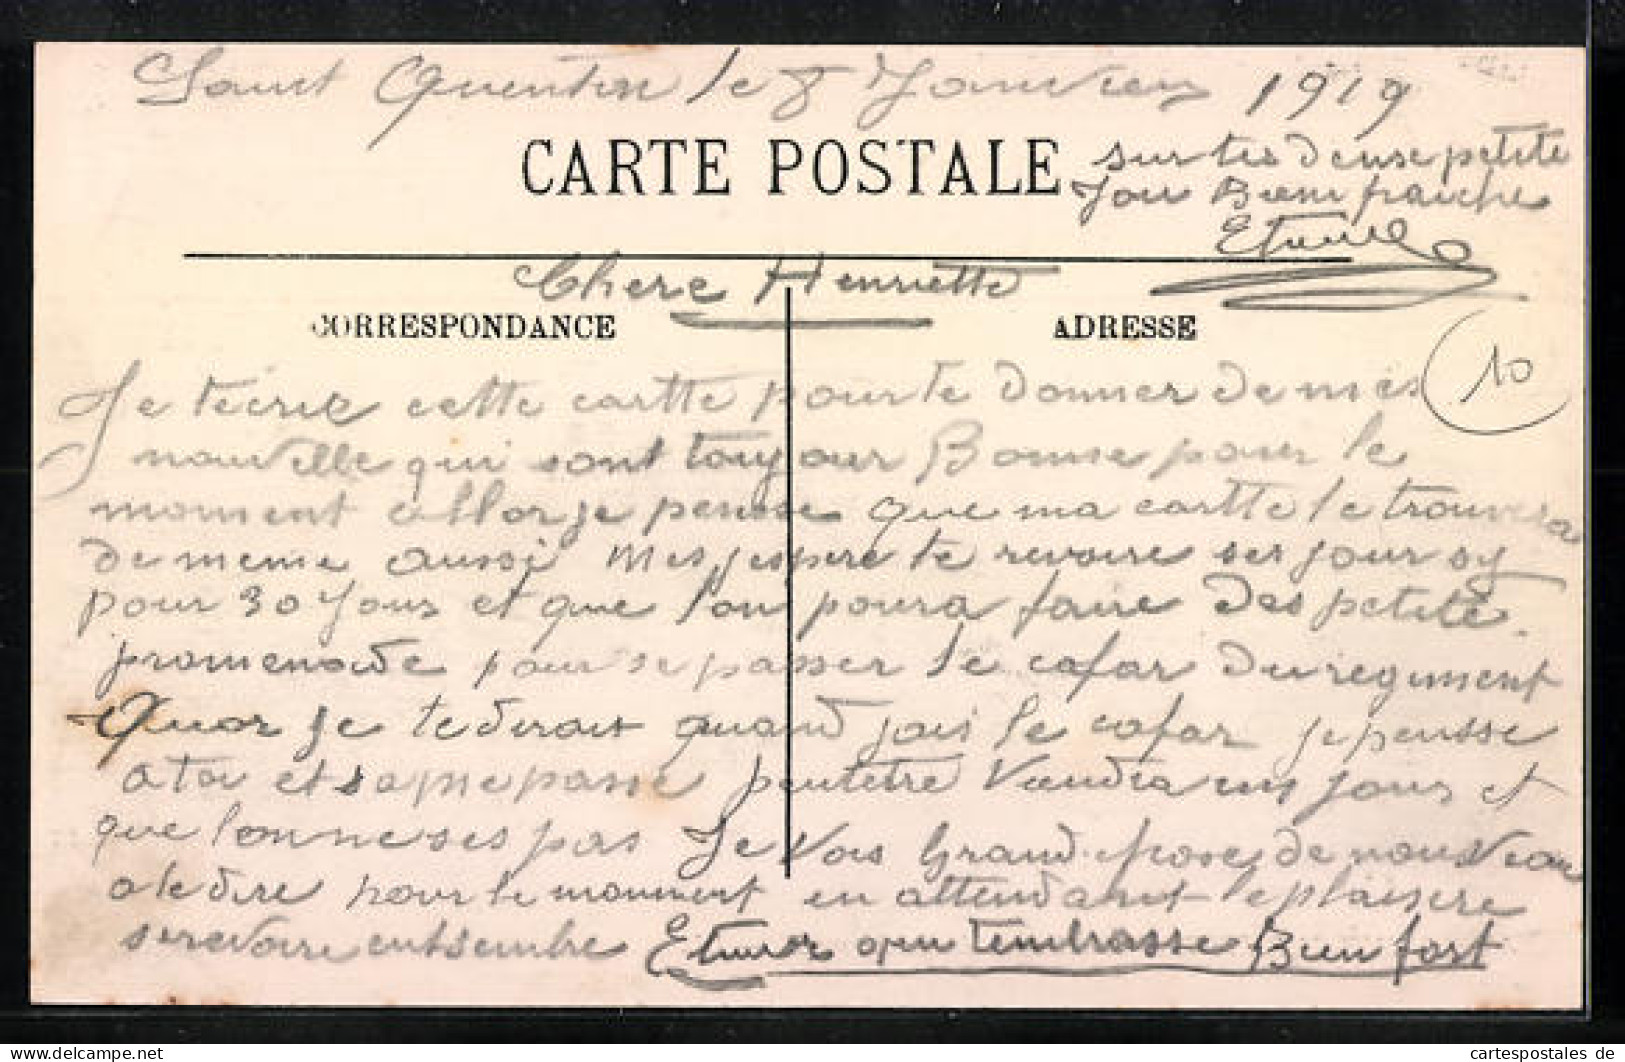 Saint Quentin le 8 Janvier 1919
CARTE POSTALE
sur tes deuse petite
Jou Bien fraiche
Etienne
Chere Henriette
CORRESPONDANCE
ADRESSE
10
Je tecris cette cartte pour te donner de mes
nouvelle qui sont toujour Bonne pour le
moment allor je pensse que ma cartte te trouvera
de meme aussi Mes jespere te revoire ses jour sy
pour 30 Jour et que l'on poura faire des petite
promenade pour se passer le cafar du regiment
Quar je te dirait quand jais le cafar je pensse
a toi et sa me passe peutetre Viendra un jour et
que lonne ses pas Je Vois Grand chose de nouveau
a te dire pour le momment en attendant le plaisire
se revoire entsemble qui tembrasse Bien fort